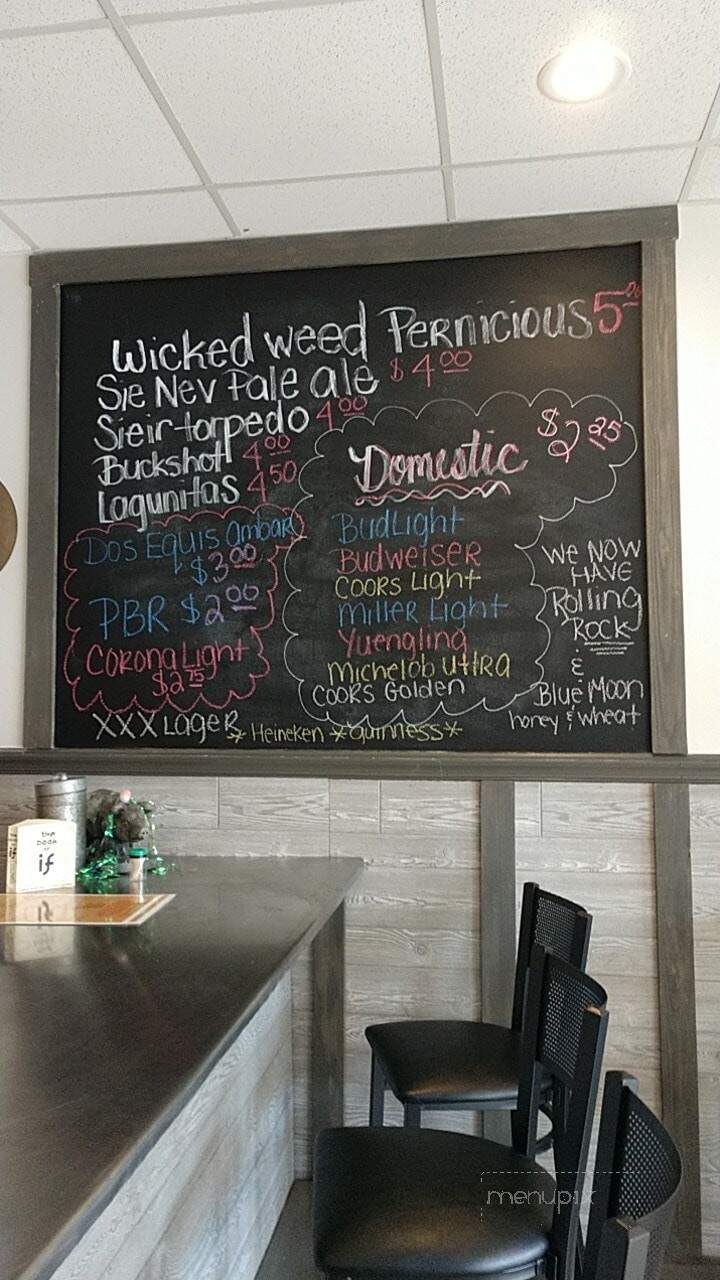 Wicked weed Pernicious 5.00
Sie Nev Pale ale $4.00
Sieir-torpedo 4.00
Buckshot 4.00
Lagunitas 4.50
Dos Equis Ambar
$3.00
PBR $2.00
Corona Light
$2.75
XXX Lager
* Heineken * Guinness *
Domestic
$2.25
BudLight
Budweiser
Coors Light
Miller Light
Yuengling
Michelob ultra
Coors Golden
We NOW
HAVE
Rolling
Rock
&
Blue Moon
honey & wheat
the
book
of
if
menupix